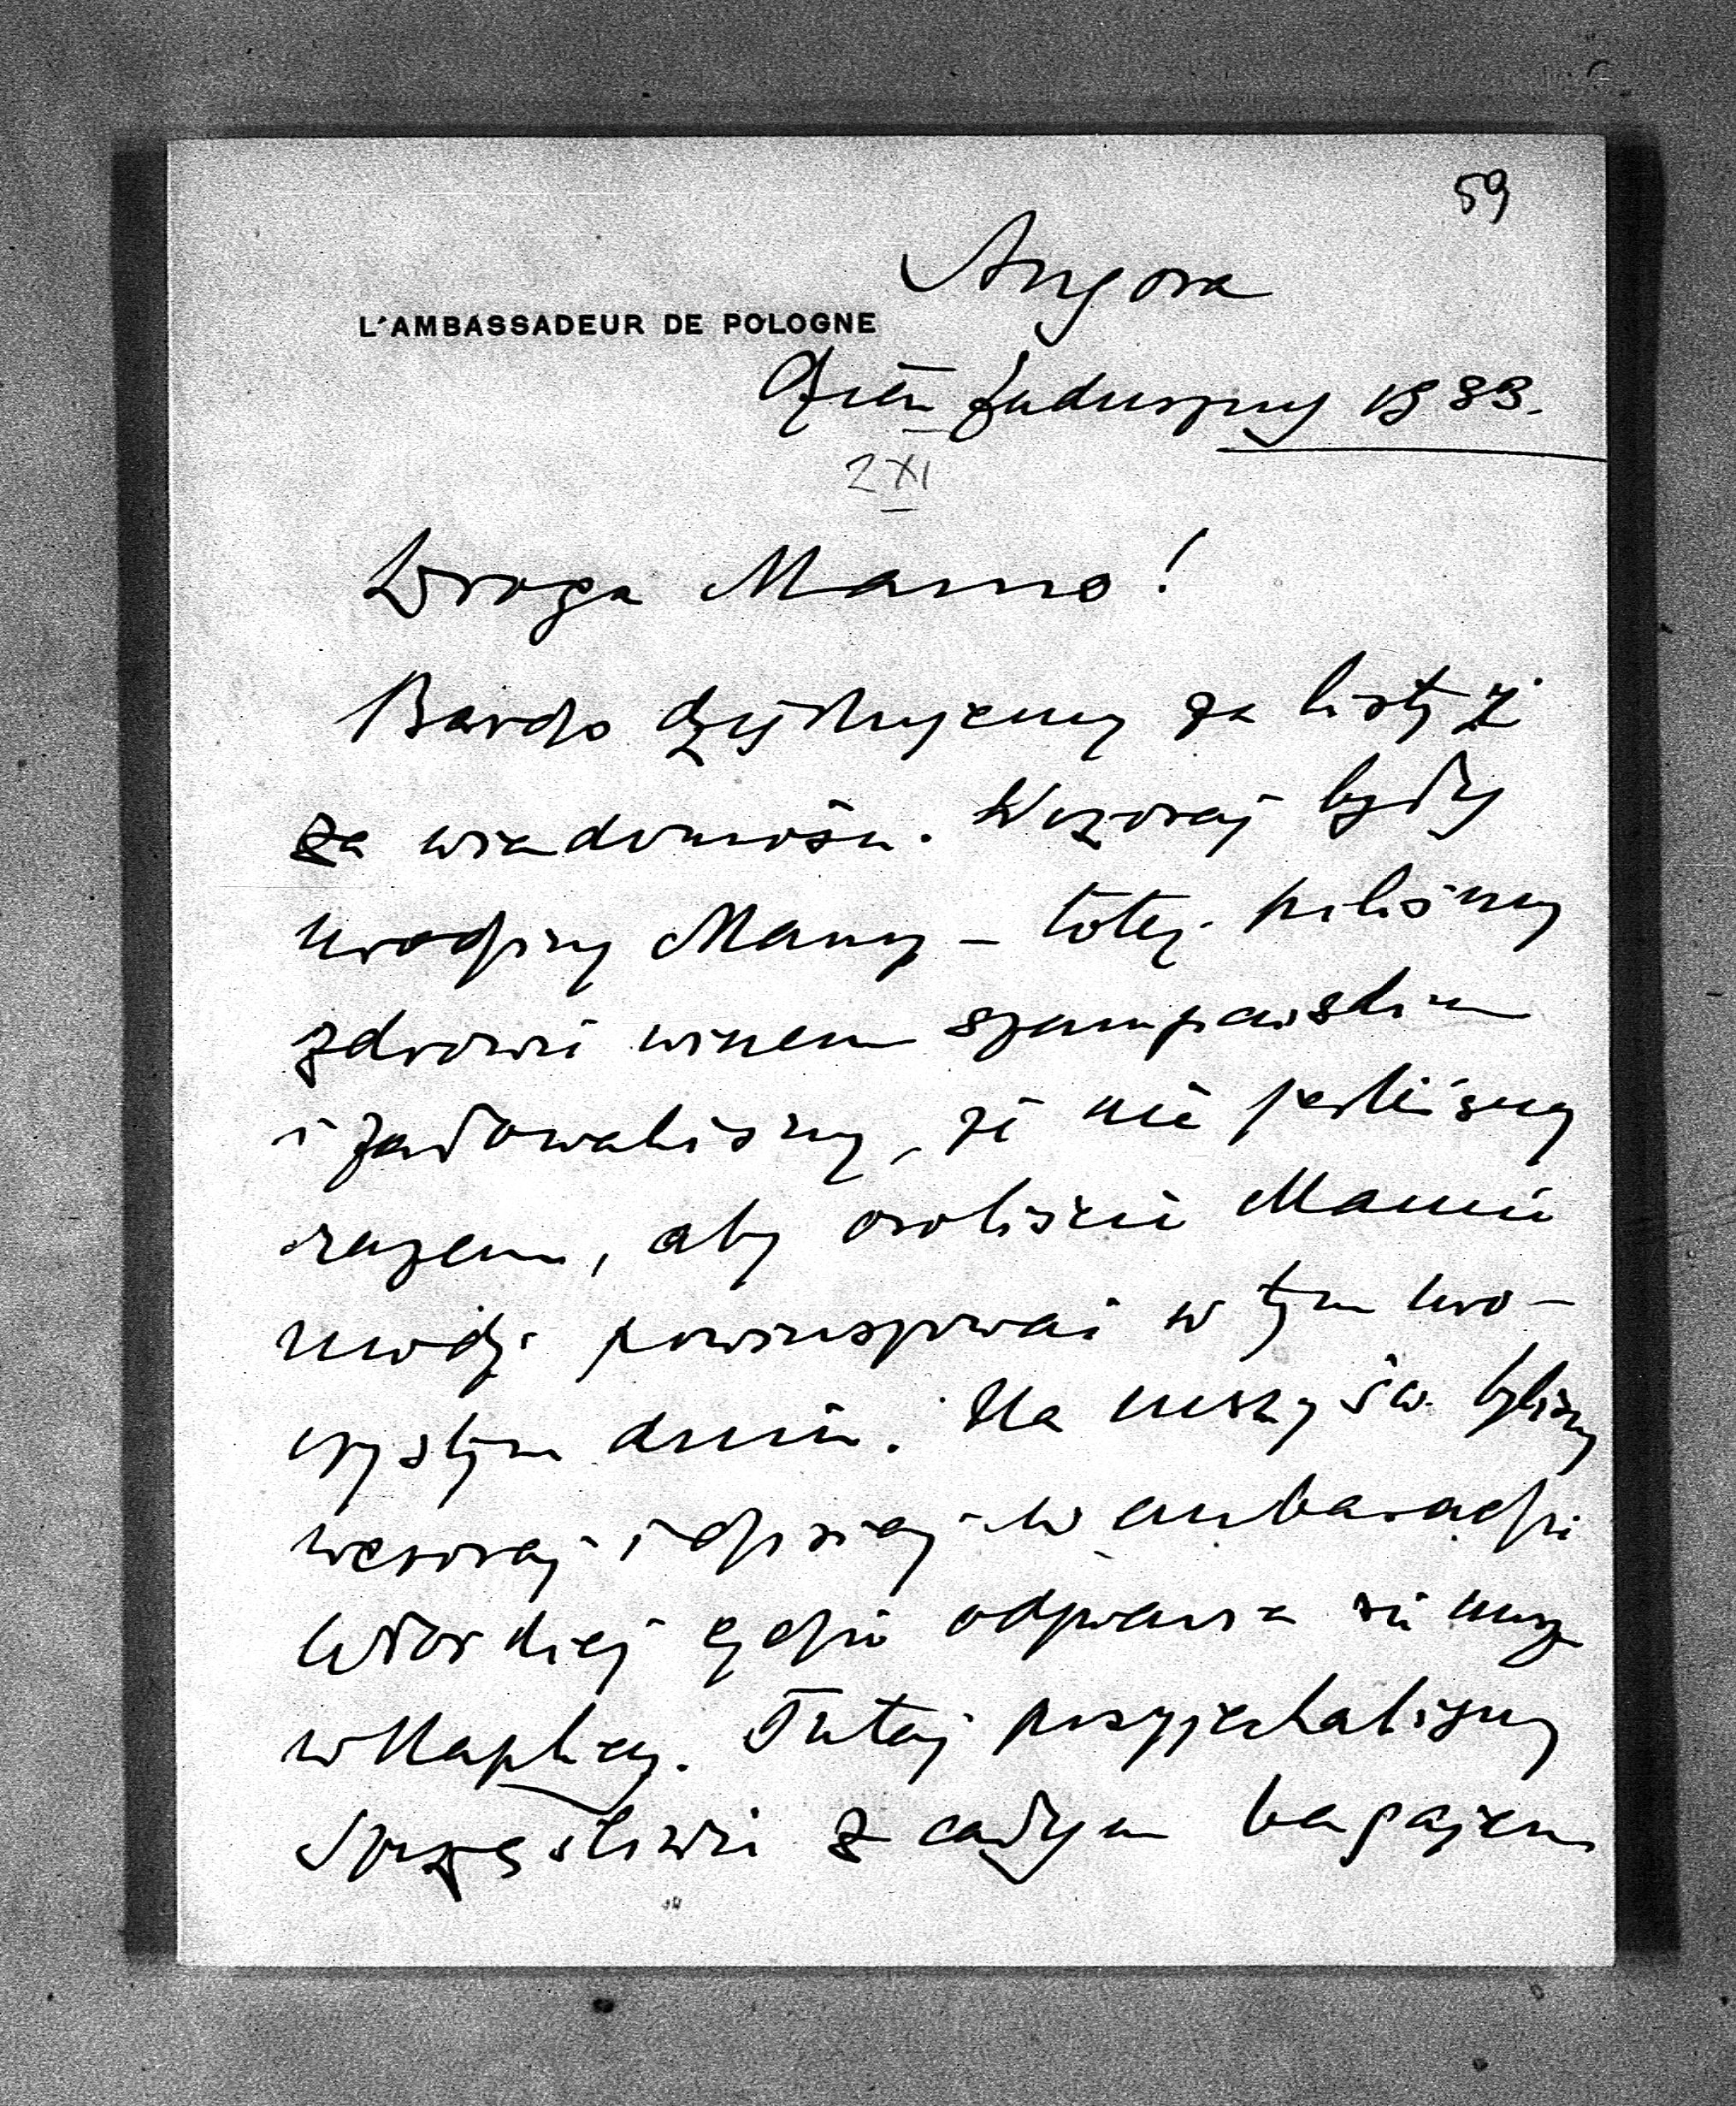 59
Angora
L'AMBASSADEUR DE POLOGNE
Dzień Zaduszny 1933.
2 XI
Droga Mamo!
Bardzo dziękujemy za listy i
za wiadomości. Wczoraj były
urodziny Mamy – toteż piliśmy
zdrowie winem szampańskim
i żałowaliśmy, że nie jesteśmy
razem, aby osobiście Mamie
módz powinszować w tym uro-
czystym dniu. Na mszy św. byliśmy
wczoraj i dzisiaj w ambasadzie
włoskiej gdzie odprawia się msze
w kaplicy. Tutaj przyjechaliśmy
szczęśliwie z całym bagażem